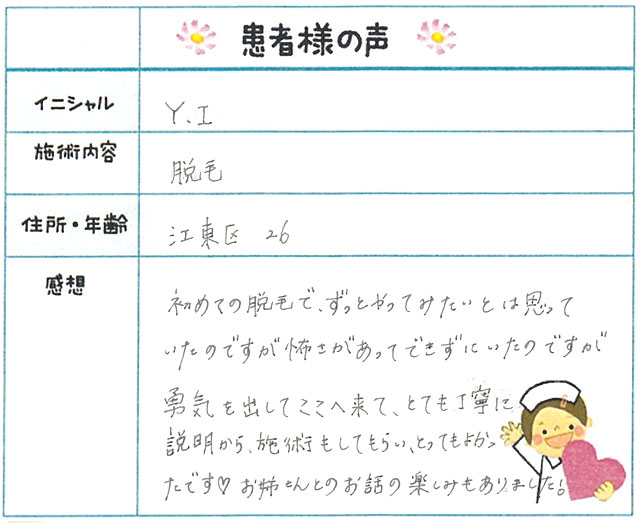 患者様の声
イニシャル Y.I
施術内容 脱毛
住所・年齢 江東区 26
感想
初めての脱毛で、ずっとやってみたいとは思って
いたのですが怖さがあってできずにいたのですが
勇気を出してここへ来て、とても丁寧に
説明から、施術もしてもらい、とってもよかっ
たです♡お姉さんとのお話の楽しみもありました!